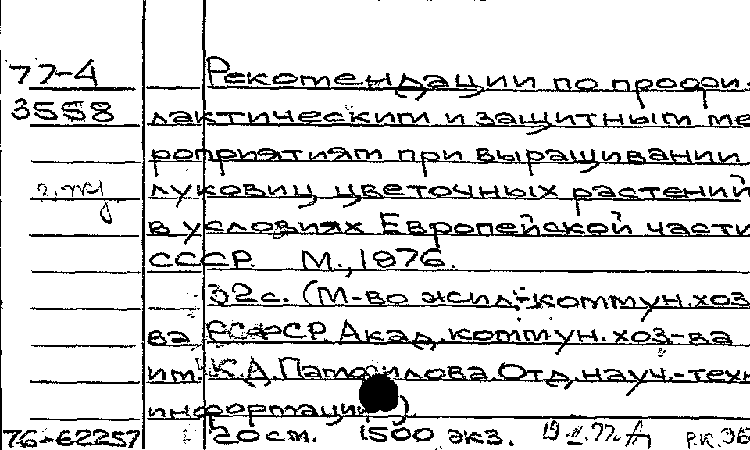 77-4 Рекомендации по профи-
3558 лактическим и защитным ме
роприятиям при выращивании
луковиц цветочных растений
в условиях Европейской части
СССР М., 1976.
32с. (М-во жил.-коммун.хоз
ва РСФСР. Акад.коммун.хоз-ва
им. К.Д.Памфилова.Отд.науч.-техн
информации).
76-62257 20см. 1500 экз. Р.К.ЭБ